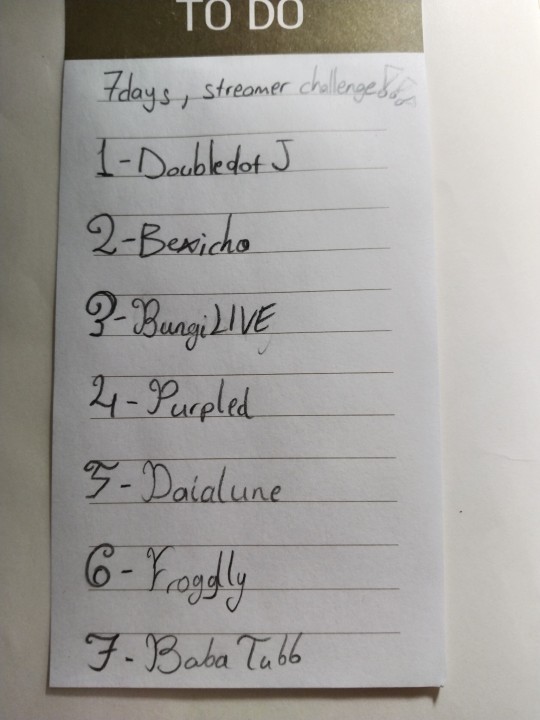 TO DO
7days, streamer challenge
1-Doubledot J
2-Bexicho
3-BungiLIVE
4-Purpled
5-Daialune
6-Frogdlly
7-Baba Tubb